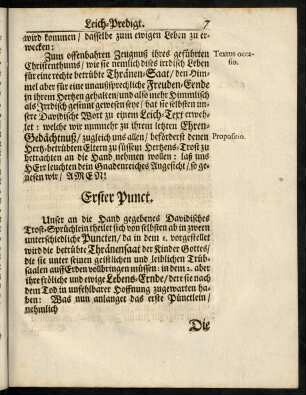 Leich-Predigt. 7
wird kommen / dasselbe zum ewigen Leben zu er-
wecken:
Zum offenbahren Zeugnuß ihres geführten
Christenthums / wie sie nemlich dises irrdisch Leben
für eine rechte betrübte Thränen-Saat / den Him-
mel aber für eine unaußsprechliche Freuden-Ernde
in ihrem Hertzen gehalten / und also mehr Himmlisch
als Irrdisch gesinnt gewesen seye / hat sie selbsten un-
sere Davidische Wort zu einem Leich-Text erweh-
let: welche wir nunmehr zu ihrem letzten Ehren-
Gedächtnuß / zugleich uns allen / beförderst denen
Hoch-betrübten Eltern zu süssem Hertzens-Trost zu
betrachten an die Hand nehmen wollen: laß uns
HErr leuchten dein Gnadenreiches Angesicht / so ge-
nesen wir / AMEN!
Textus occa-
sio.
Propositio.
Erster Punct.
Unser an die Hand gegebenes Davidisches
Trost-Sprüchlein theilet sich von selbsten ab in zween
unterschiedliche Puncten / da in dem 1. vorgestellet
wird die betrübte Thränensaat der Kinder Gottes /
die sie unter seinen geistlichen und leiblichen Trüb-
saalen auff Erden vollbringen müssen: in dem 2. aber
ihre fröliche und ewige Lebens-Ernde / dere sie nach
dem Tod in unfehlbarer Hoffnung zugewarten ha-
ben: Was nun anlanget das erste Pünctlein /
nehmlich
Die